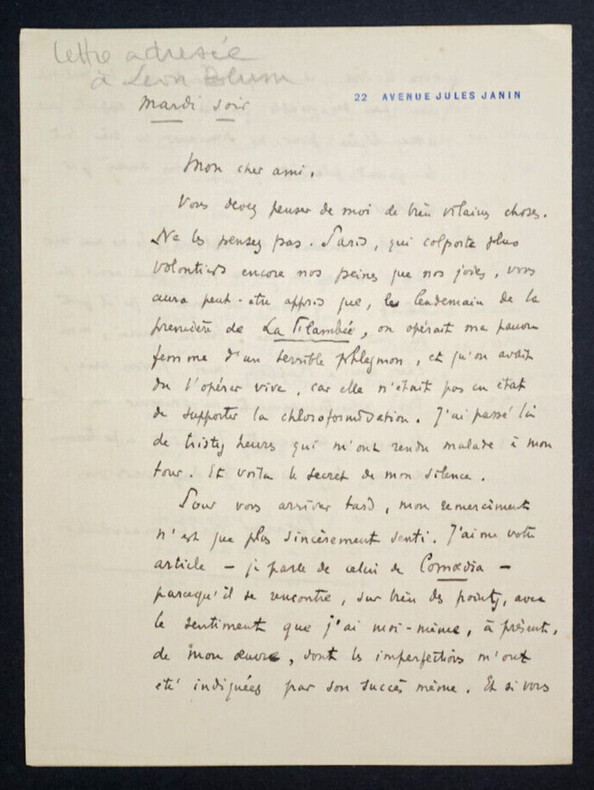 lettre adressée
à Léon Blum
22 AVENUE JULES JANIN
Mardi soir
Mon cher ami,
Vous devez penser de moi de bien vilaines choses.
Ne les pensez pas. Paris, qui colporte plus
volontiers encore nos peines que nos joies, vous
aura peut-être appris que, le lendemain de la
première de La Flambée, on opérait ma pauvre
femme d'un terrible phlegmon, et qu'on avait
dû l'opérer vive, car elle n'était pas en état
de supporter la chloroformisation. J'ai passé là
de tristes heures qui m'ont rendu malade à mon
tour. Et voilà le secret de mon silence.
Pour vous arriver tard, mon remerciement
n'est que plus sincèrement senti. J'aime votre
article – je parle de celui de Comœdia –
parcequ'il se rencontre, sur bien des points, avec
le sentiment que j'ai moi-même, à présent,
de mon œuvre, dont les imperfections m'ont
été indiquées par son succès même. Et si vous